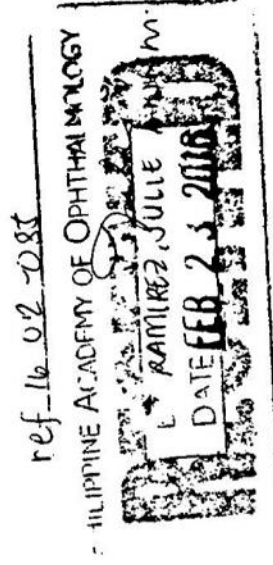 ref 16 02 085
PHILIPPINE ACADEMY OF OPHTHALMOLOGY
RAMIREZ, JULIE M.
DATE FEB 23 2016